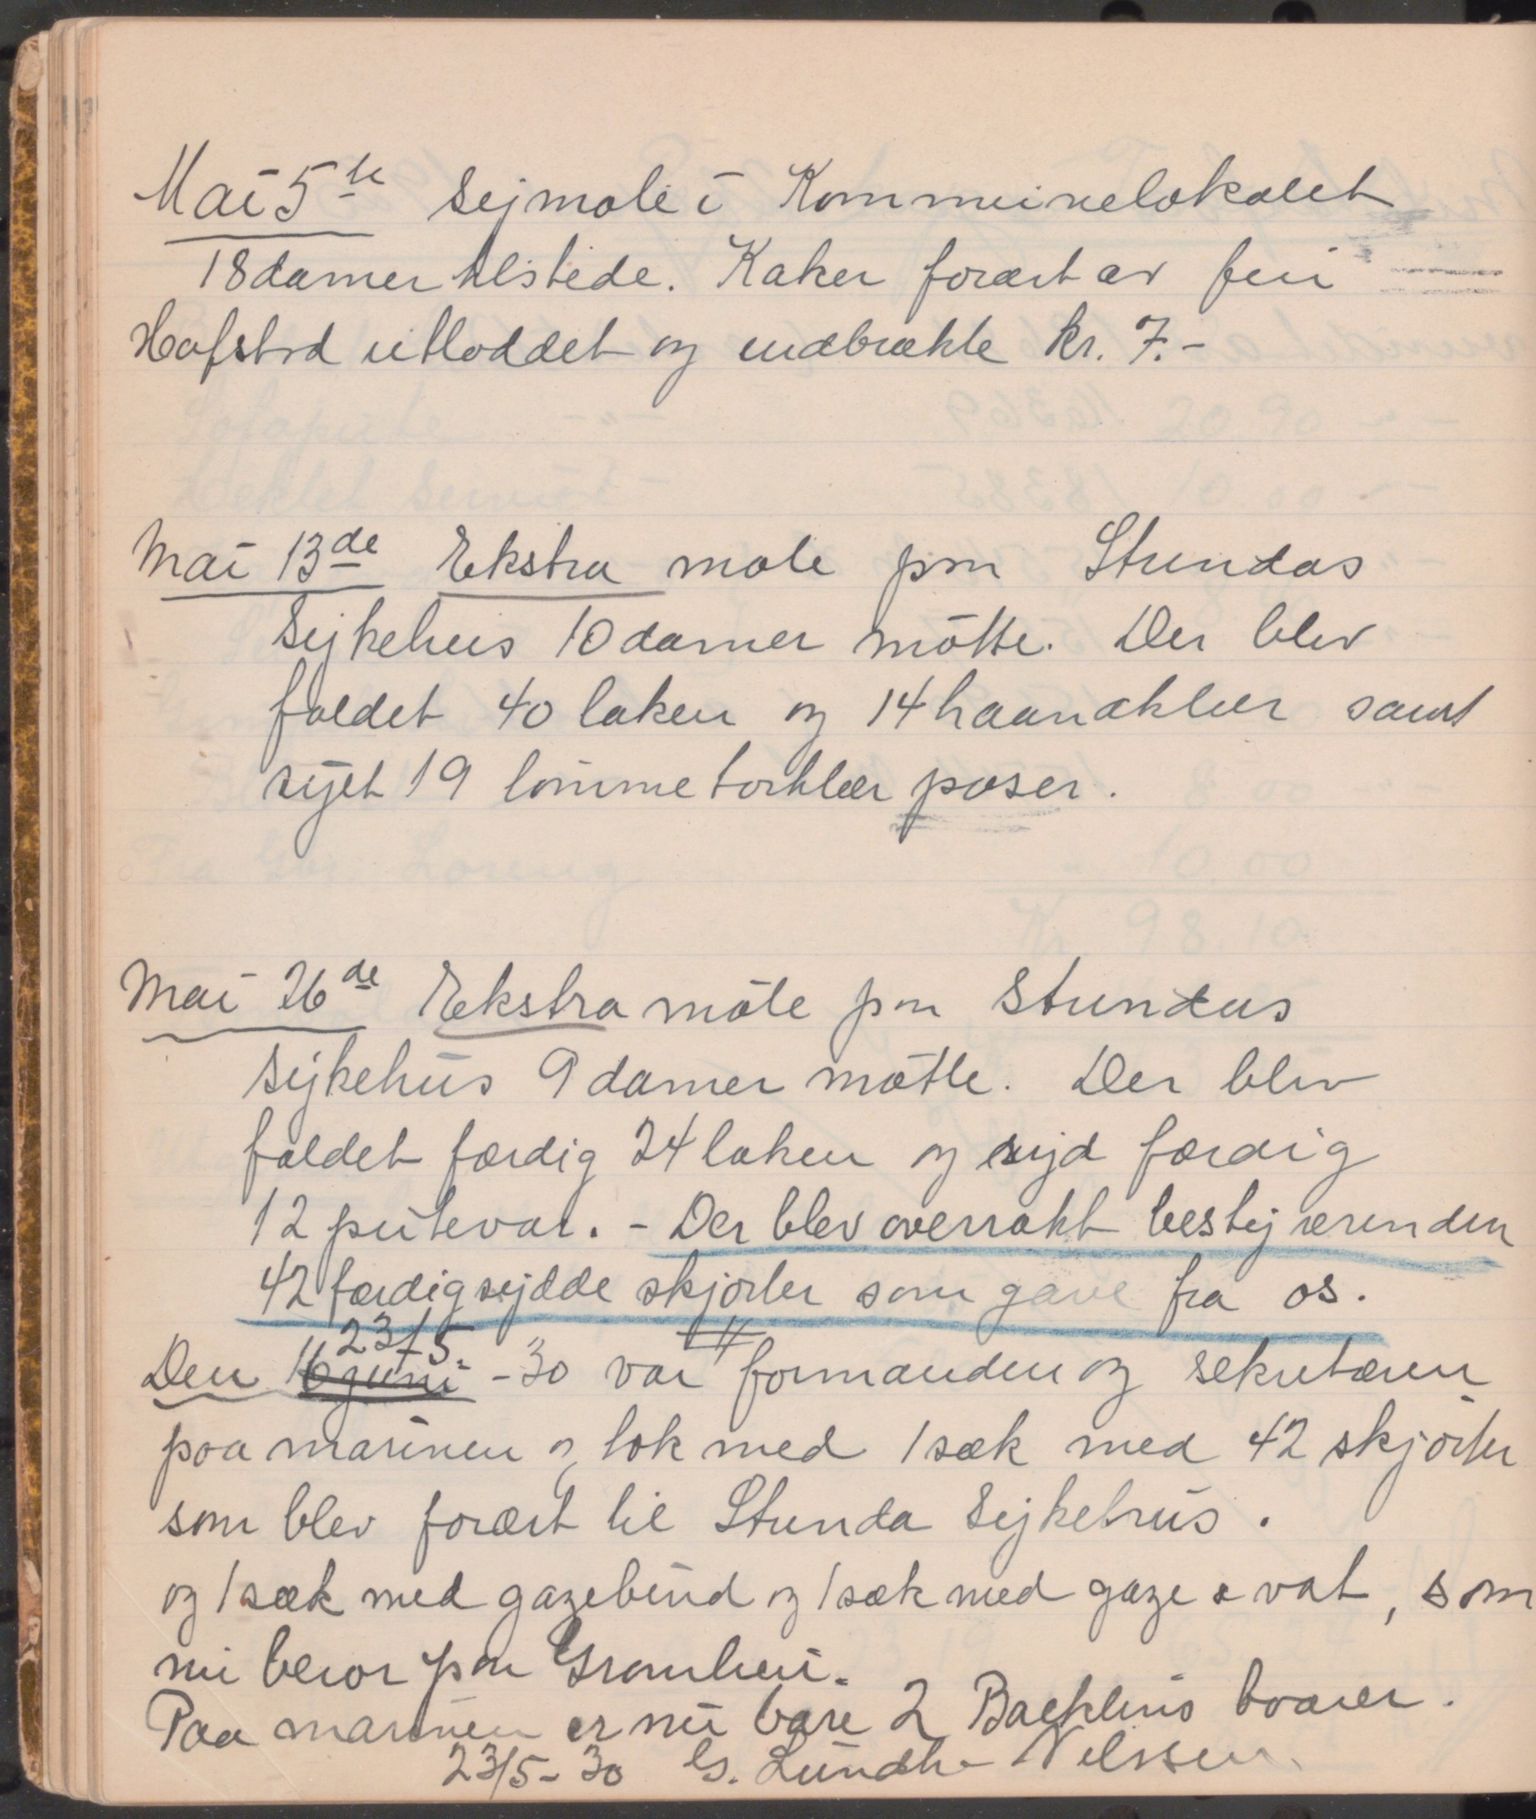 Mai 5te Symøte i Kommunelokalet
18 damer tilstede. Kaker forært av fru
Hofstad utloddet og indbrakte kr. 7.-
Mai 13de Ekstra møte paa Stundas
Sykehus 10 damer møtte. Der blev
faldet 40 laken og 14 haandklær samt
syet 19 lommetørklær poser.
Mai 26de Ekstra møte paa Stundas
Sykehus 9 damer møtte. Der blev
faldet færdig 24 laken og syd færdig
12 putevar. - Der blev overrakt bestyrerinden
42 færdigsydde skjorter som gave fra os.
23/5.
Den 16 juni -30 var formanden og sekretæren
paa marinen og tok med 1 sæk med 42 skjorter
som blev forært til Stunda Sykehus.
og 1 sæk med gazebind og 1 sæk med gaze & vat, som
nu beror paa
Paa marinen er nu bare 2 Baeklins baarer.
23/5-30 G. Lundh-Nilssen